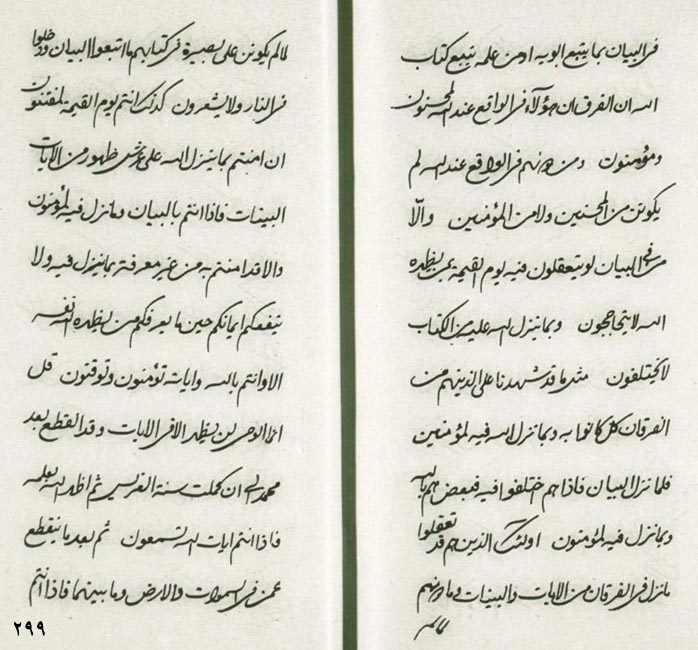 فی البیان بما یتبع ابویه او من علمه یتبع کتاب
الله ان الفرقان هؤلاء فی الواقع عند الله لمحسنون
ومؤمنون ومن دونهم فی الواقع عند الله لم
یکونن من المحسنین ولا من المؤمنین والا
من فی البیان لو یتعقلون فیه یوم القیمة بمن یظهره
الله لا یتحاججون وبما ینزل الله علیه من الکتاب
لا یختلفون مثل ما قد شهدنا علی الذینهم من
الفرقان کل کانوا به وبما نزل الله فیه لمؤمنین
فلما نزل البیان فاذا هم ختلفوا فیه فبعض هم بالله
وبما نزل فیه لمؤمنون اولئک الذین هم قد تعقلوا
ما نزل فی الفرقان من الایات والبینات وما دونهم
لما لم
لما لم یکونن علی بصیرة فی کتابهم ما اتبعوا البیان ودخلوا
فی النار ولا یشعرون کذلک انتم یوم القیمة لمفتنون
ان امنتم بما ینزل الله علی عرش ظهوره من الایات
البینات فاذا انتم بالبیان وما نزل فیه لمؤمنون
والا قد امنتم به من غیر معرفة بما ینزل فیه ولا
ینفعکم ایمانکم حین ما یعرفکم من یظهره الله نفسه
الا وانتم بالله وایاته تؤمنون وتوقنون قل
انما الوحی لن یظهر الا فی الایات وقد انقطع بعد
محمد الی ان کملت سنة الغرس ثم اظهر الله بعلمه
فاذا انتم ایات الله تسمعون ثم بعد ما ینقطع
عمن فی السموات والارض وما بینهما فاذا انتم
۲۹۹